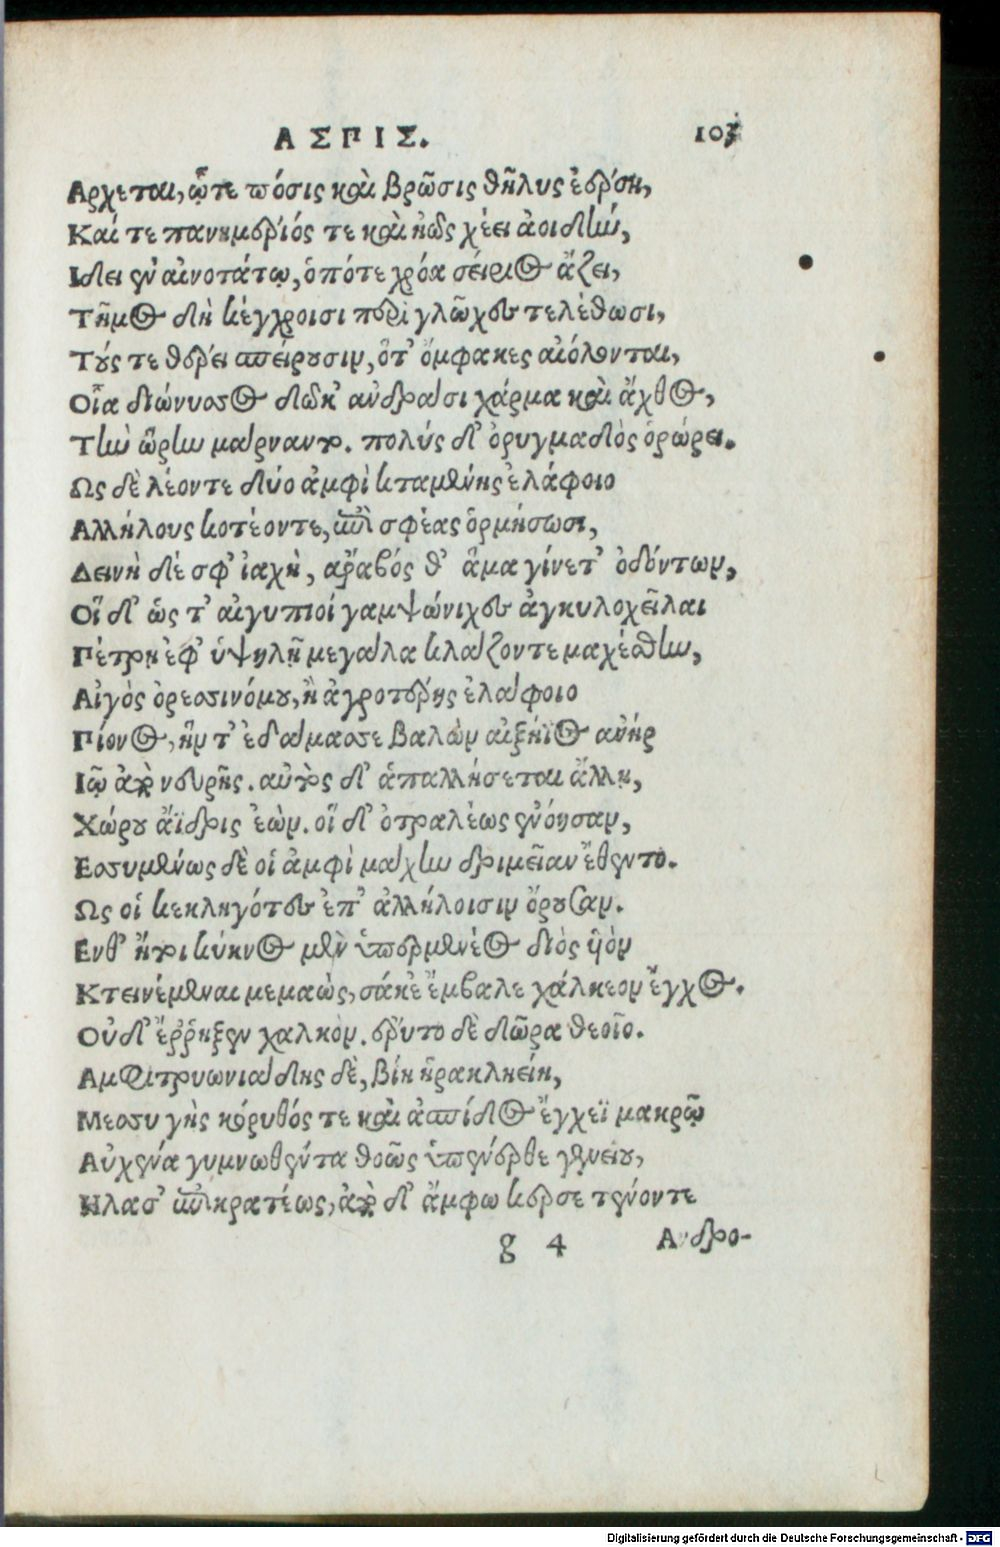 ΑΣΠΙΣ. 103
Αρχεται, ᾧτε πόσις καὶ βρῶσις θῆλυς ἐέρση,
Καί τε πανημέριός τε καὶ ἠῶς χέει ἀοιδίω,
Ιδει ἐν αἰνοτάτῳ, ὁπότε χρόα σείριος ἄζει,
Τῆμος δὴ κέγχροισι πέρι γλῶχες τελέθωσι,
Τούς τε θέρει σπείρουσιν, ὅτ' ὄμφακες αἰόλονται,
Οἷα διώνυσος δῶκ' ἀνδράσι χάρμα καὶ ἄχθος,
Τὴν ὥρην μάρναντο. πολύς δ' ὀρυγμαδὸς ὀρώρει.
Ως δὲ λέοντε δύο ἀμφὶ κταμένης ἐλάφοιο
Αλλήλους κοτέοντε, ἐπὶ σφέας ὁρμήσωσι,
Δεινὴ δέ σφ' ἰαχὴ, ἄραβός θ' ἅμα γίνετ' ὀδόντων,
Οἵ δ' ὥς τ' αἰγυπιοί γαμψώνιχες ἀγκυλοχεῖλαι
Πέτρῃ ἐφ' ὑψηλῇ μεγάλα κλάζοντε μαχέσθην,
Αἰγὸς ὀρεσσινόμου, ἢ ἀγροτέρης ἐλάφοιο
Πίονος, ἥν τ' ἐδάμασσε βαλὼν αἰζήϊος ἀνήρ
Ιῷ ἀπὸ νευρῆς. αὐτὸς δ' ἀπαλήσεται ἄλλῃ,
Χώρου ἄϊδρις ἐών. οἵ δ' ὀτραλέως ἐνόησαν,
Εσσυμένως δὲ οἱ ἀμφὶ μάχην δριμεῖαν ἔθεντο.
Ως οἱ κεκληγότες ἐπ' ἀλλήλοισιν ὄρουσαν.
Ενθ' ἤτοι κύκνος μὲν ὑπερμενέος διὸς υἱὸν
Κτεινέμεναι μεμαὼς, σάκει ἔμβαλε χάλκεον ἔγχος.
Οὐδ' ἔῤῥηξεν χαλκὸν. ἔρυτο δὲ δῶρα θεοῖο.
Αμφιτρυωνιάδης δὲ, βίη ἡρακληείη,
Μεσσυγὴς κόρυθός τε καὶ ἀσπίδος ἔγχεϊ μακρῷ
Αὐχένα γυμνωθέντα θοῶς ὑπένερθε γενείου,
Ηλασ' ἐπικρατέως, ἀπὸ δ' ἄμφω κέρσε τένοντε
g 4 Ανδρο-
Digitalisierung gefördert durch die Deutsche Forschungsgemeinschaft - DFG